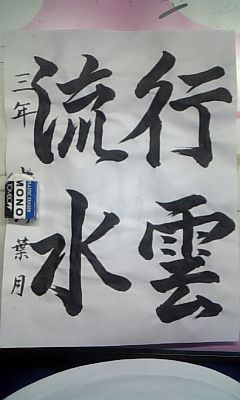 行雲
流水
三年
葉月
PLASTIC ERASER
MONO
TOMBOW